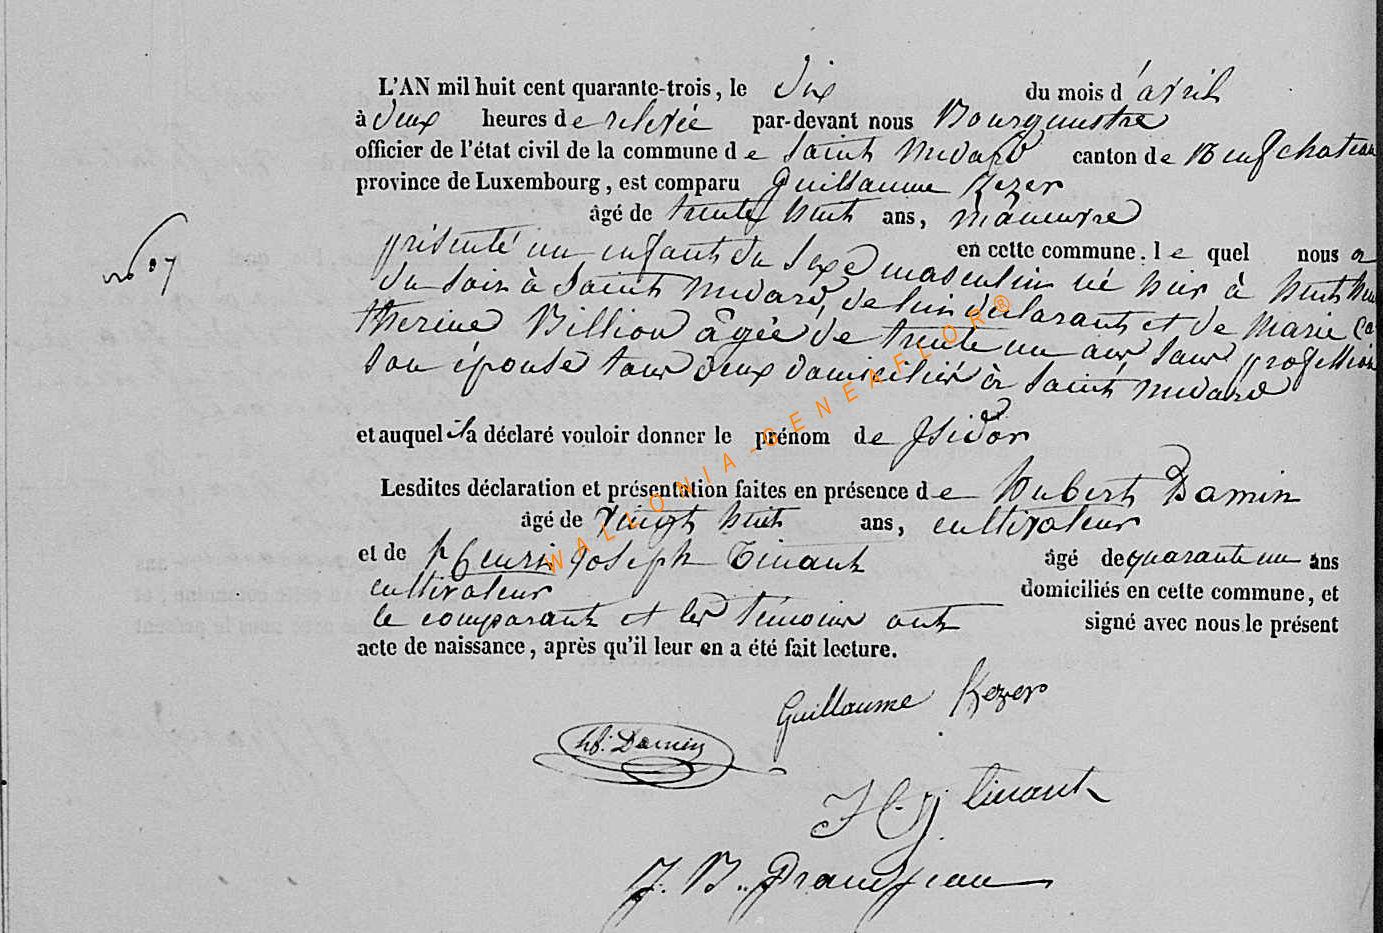 L'AN mil huit cent quarante-trois, le dix du mois d'avril
à deux heures de relevée par-devant nous Bourgmestre
officier de l'état civil de la commune de Saint Médard canton de Neufchateau
province de Luxembourg, est comparu Guillaume Kezer
âgé de trente huit ans, manœuvre
en cette commune. le quel nous a
présenté un enfant du sexe masculin né hier à huit heu
du soir à Saint Médard, de lui déclarant et de Marie Ca
therine Billion âgée de trente un ans sans profession
son épouse tous deux domiciliés à Saint Médard
et auquel il a déclaré vouloir donner le prénom de Isidor
Lesdites déclaration et présentation faites en présence de Hubert Damin
âgé de vingt huit ans, cultivateur
et de Henri Joseph Tinant âgé de quarante un ans
cultivateur domiciliés en cette commune, et
le comparant et les témoins ont signé avec nous le présent
acte de naissance, après qu'il leur en a été fait lecture.
no 07
Guillaume Kezer
hb. Damin
H. J. Tinant
J. B. Grandjean
WALLONIA-GENEAFLOR®